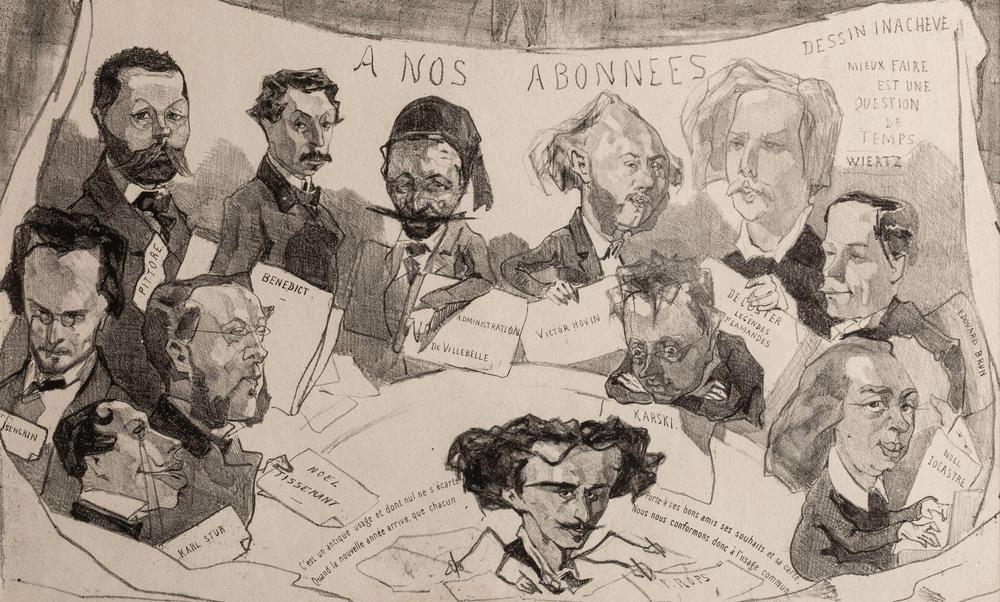 A NOS ABONNEES
DESSIN INACHEVE
MIEUX FAIRE
EST UNE
QUESTION
DE
TEMPS
WIERTZ
PITTORE
BENEDICT.
ADMINISTRATION
DE VILLEBELLE
VICTOR HOVIN
DECOSTER
LEGENDES
FLAMANDES
EDOUARD
SENGRIN
KARSKI.
NOEL
JOCASTRE
NOEL
TISSERANT
KARL STUR
C'est un antique usage et dont nul ne s'écarte
Quand la nouvelle année arrive, que chacun
Porte à ses bons amis ses souhaits et sa carte,
Nous nous conformons donc à l'usage commun.
F. ROPS